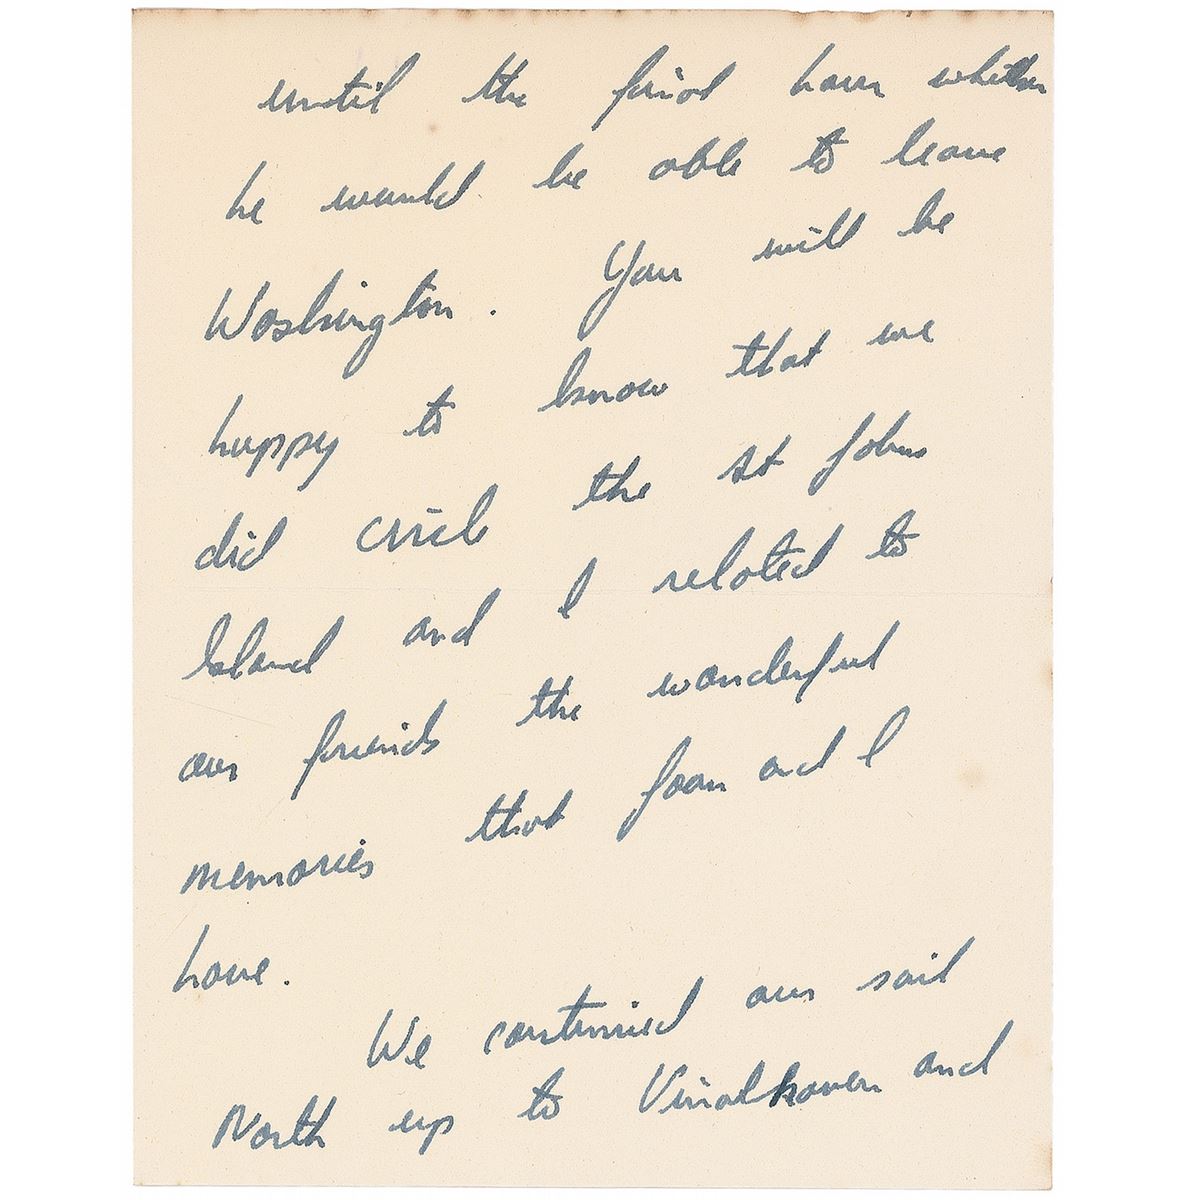 until the final hour whether
he would be able to leave
Washington. You will be
happy to know that we
did circle the St Johns
Island and I related to
our friends the wonderful
memories that Joan and I
have.
We continued our sail
North up to Vinalhaven and